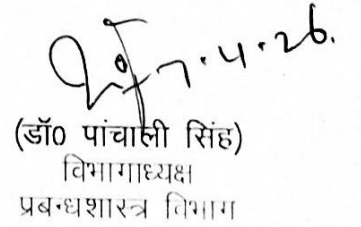 7.4.26.
(डॉ0 पांचाली सिंह)
विभागाध्यक्ष
प्रबन्धशास्त्र विभाग